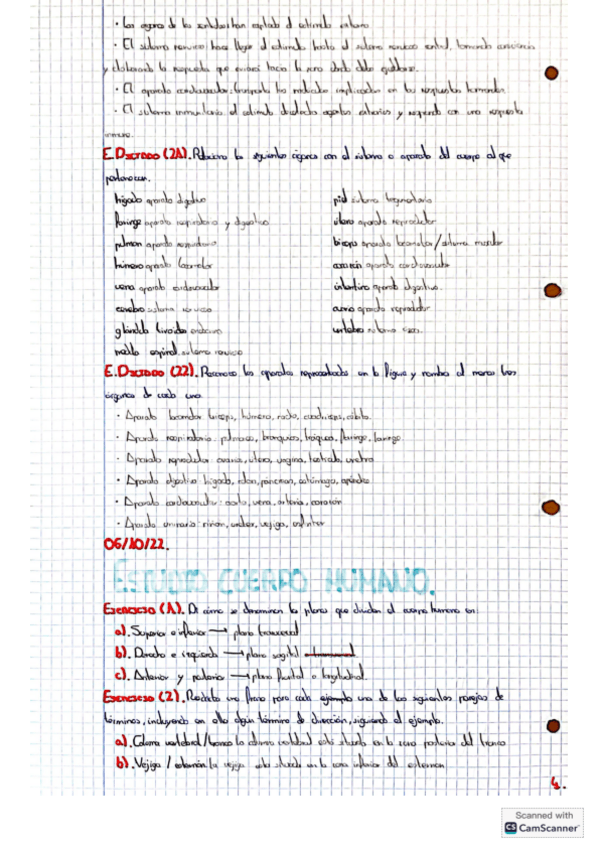 · Los organos de los sentidos han captado el estimulo externo
· El sistema nervioso hace llegar el estimulo hasta el sistema nervioso central, tomando conciencia
y elaborando la respuesta que enviará hacia la zona donde debe
· El aparato cardiovascular: transporta los implicados en las respuestas hormonales.
· El sistema inmunitario el estimulo agentes externos y responde con una respuesta
inmune.
E.Dictado (21). Relaciona los siguientes organos con el sistema o aparato del cuerpo al que
pertenecen.
higado aparato digestivo
piel sistema tegumentario
faringe aparato respiratorio y digestivo
utero aparato reproductor
pulmon aparato respiratorio
biceps aparato locomotor/sistema muscular
húmero aparato locomotor
corazón aparato cardiovascular
vena aparato cardiovascular
intestino aparato digestivo.
cerebro sistema nervioso
ovario aparato reproductor
glándula tiroides endocrino
sistema
medula espinal sistema nervioso
E.Dictado (22). Reconoce los aparatos representados en la figura y nombra al menos tres
órganos de cada uno.
· Aparato locomotor biceps, húmero, radio,
· Aparato respiratorio: pulmones, bronquios, tráquea, faringe, laringe.
· Aparato reproductor ovarios, utero, vagina, testiculo, uretra
· Aparato digestivo: higado, colon, páncreas, estómago, apéndice
· Aparato cardiovascular: aorta, vena, arteria, corazón
· Aparato urinario: riñon, ureter, vejiga, esfinter
06/10/22.
ESTUDIO CUERPO HUMANO.
Ejercicio (1). Di como se denominan los planos que dividen el cuerpo humano en:
a). Superior e inferior → plano transversal
b). Derecho e izquierdo → plano sagital
c). Anterior y posterior → plano frontal o longitudinal.
Ejercicio (2). Redacta una frase para cada ejemplo una de las siguientes parejas de
términos, incluyendo en ella algún término de dirección, siguiendo el ejemplo.
a). Columna vertebral/tronco la columna vertebral está situada en la zona posterior del tronco
b). Vejiga/esternón la vejiga esta situada en la zona inferior del esternon
4.
Scanned with
CS CamScanner